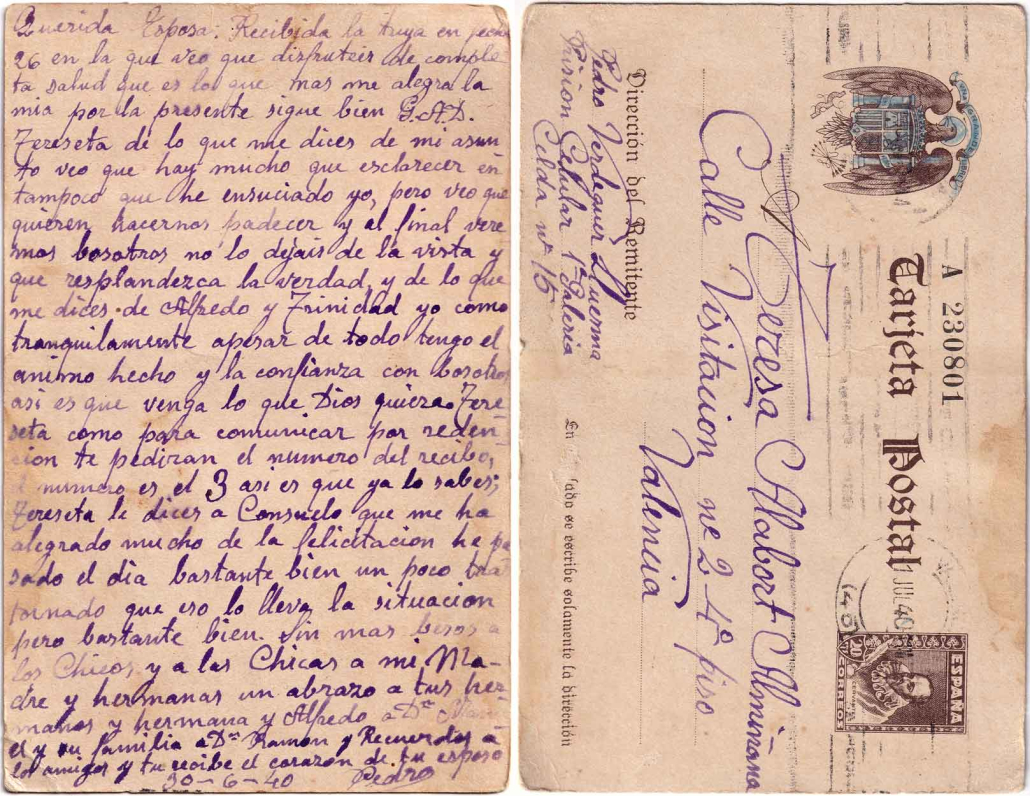 Querida Esposa: Recibida la tuya en fecha
26 en la que veo que disfruteis de comple
ta salud que es lo que mas me alegra la
mia por la presente sigue bien G.A.D.
Tereseta de lo que me dices de mi asun
to veo que hay mucho que esclarecer en
tampoco que he ensuciado yo, pero veo que
quieren hacernos padecer y al final vere
mos bosotros no lo dejais de la vista y
que resplandezca la verdad, y de lo que
me dices de Alfredo y Trinidad yo como
tranquilamente apesar de todo tengo el
animo hecho y la confianza con bosotros
asi es que venga lo que Dios quiera. Tere-
seta como para comunicar por reden-
cion te pediran el numero del recibo,
numero es el 3 asi es que ya lo sabes;
Tereseta le dices a Consuelo que me ha
alegrado mucho de la felicitacion he pa
sado el dia bastante bien un poco tras
tornado que eso lo lleva la situacion
pero bastante bien. Sin mas besos a
los Chicos y a las Chicas a mi Ma-
dre y hermanas un abrazo a tus her-
manos y hermana y Alfredo a Dn Manu
el y su familia a Dn Ramon y Recuerdos a
los amigos y tu recibe el corazon de tu esposo
30-6-40 Pedro
A 230801
Tarjeta Postal
JUL 40
ESPAÑA
20 CTS
CORREOS
A Teresa Alabort Almiñana
Calle Visitacion nº 2 4º piso
Valencia
Dirección del Remitente
Pedro Verdeguer
Prision Celular 1ª Galeria
Celda nº 15
En lado se escribe solamente la dirección